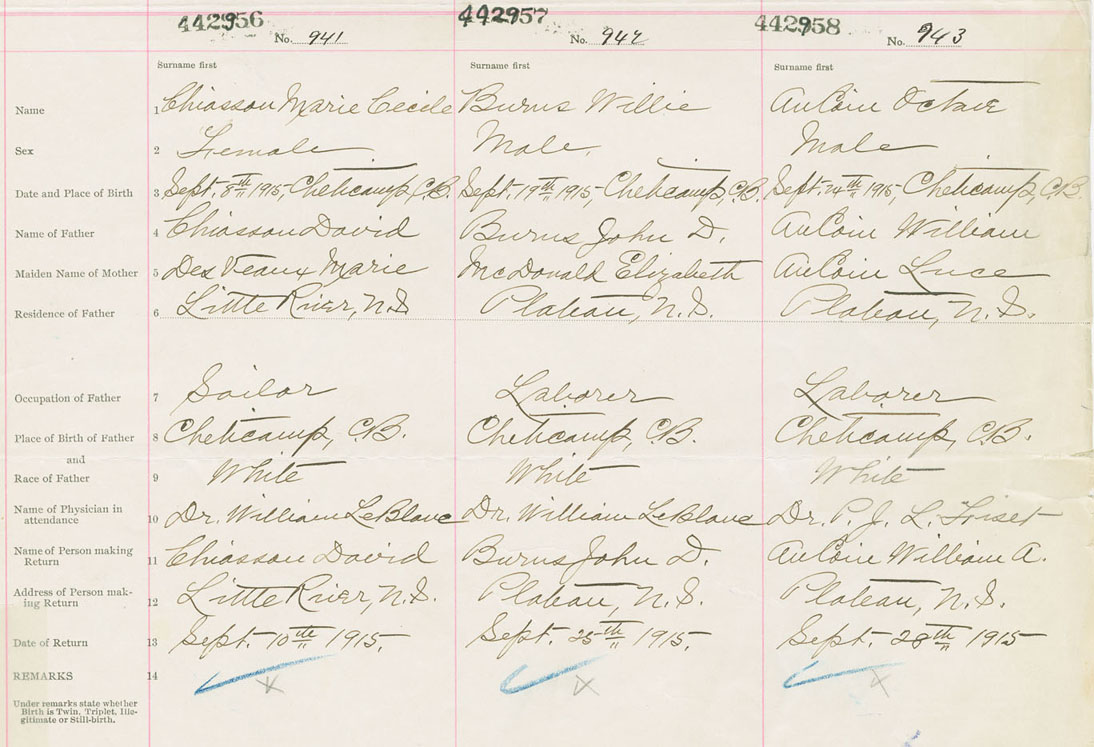 442956 442957 442958
No. 941 No. 942 No. 943
Surname first Surname first Surname first
Name 1 Chiasson Marie Cecile Burns Willie AuCoin Octave
Sex 2 Female Male. Male
Date and Place of Birth 3 Sept. 8th 1915, Cheticamp, C.B. Sept. 19th 1915, Cheticamp, C.B. Sept. 24th 1915, Cheticamp, C.B.
Name of Father 4 Chiasson David Burns John D. AuCoin William
Maiden Name of Mother 5 DesVeaux Marie McDonald Elizabeth AuCoin Luce
Residence of Father 6 Little River, N.S. Plateau, N.S. Plateau, N.S.
Occupation of Father 7 Sailor Laborer Laborer
Place of Birth of Father 8 Cheticamp, C.B. Cheticamp, C.B. Cheticamp, C.B.
and
Race of Father 9 White White White
Name of Physician in
attendance 10 Dr. William LeBlanc Dr. William LeBlanc Dr. P. J. L. Fiset
Name of Person making
Return 11 Chiasson David Burns John D. AuCoin William A.
Address of Person mak-
ing Return 12 Little River, N.S. Plateau, N.S. Plateau, N.S.
Date of Return 13 Sept. 10th 1915. Sept. 25th 1915. Sept. 28th 1915
REMARKS 14
Under remarks state whether
Birth is Twin, Triplet, Ille-
gitimate or Still-birth.